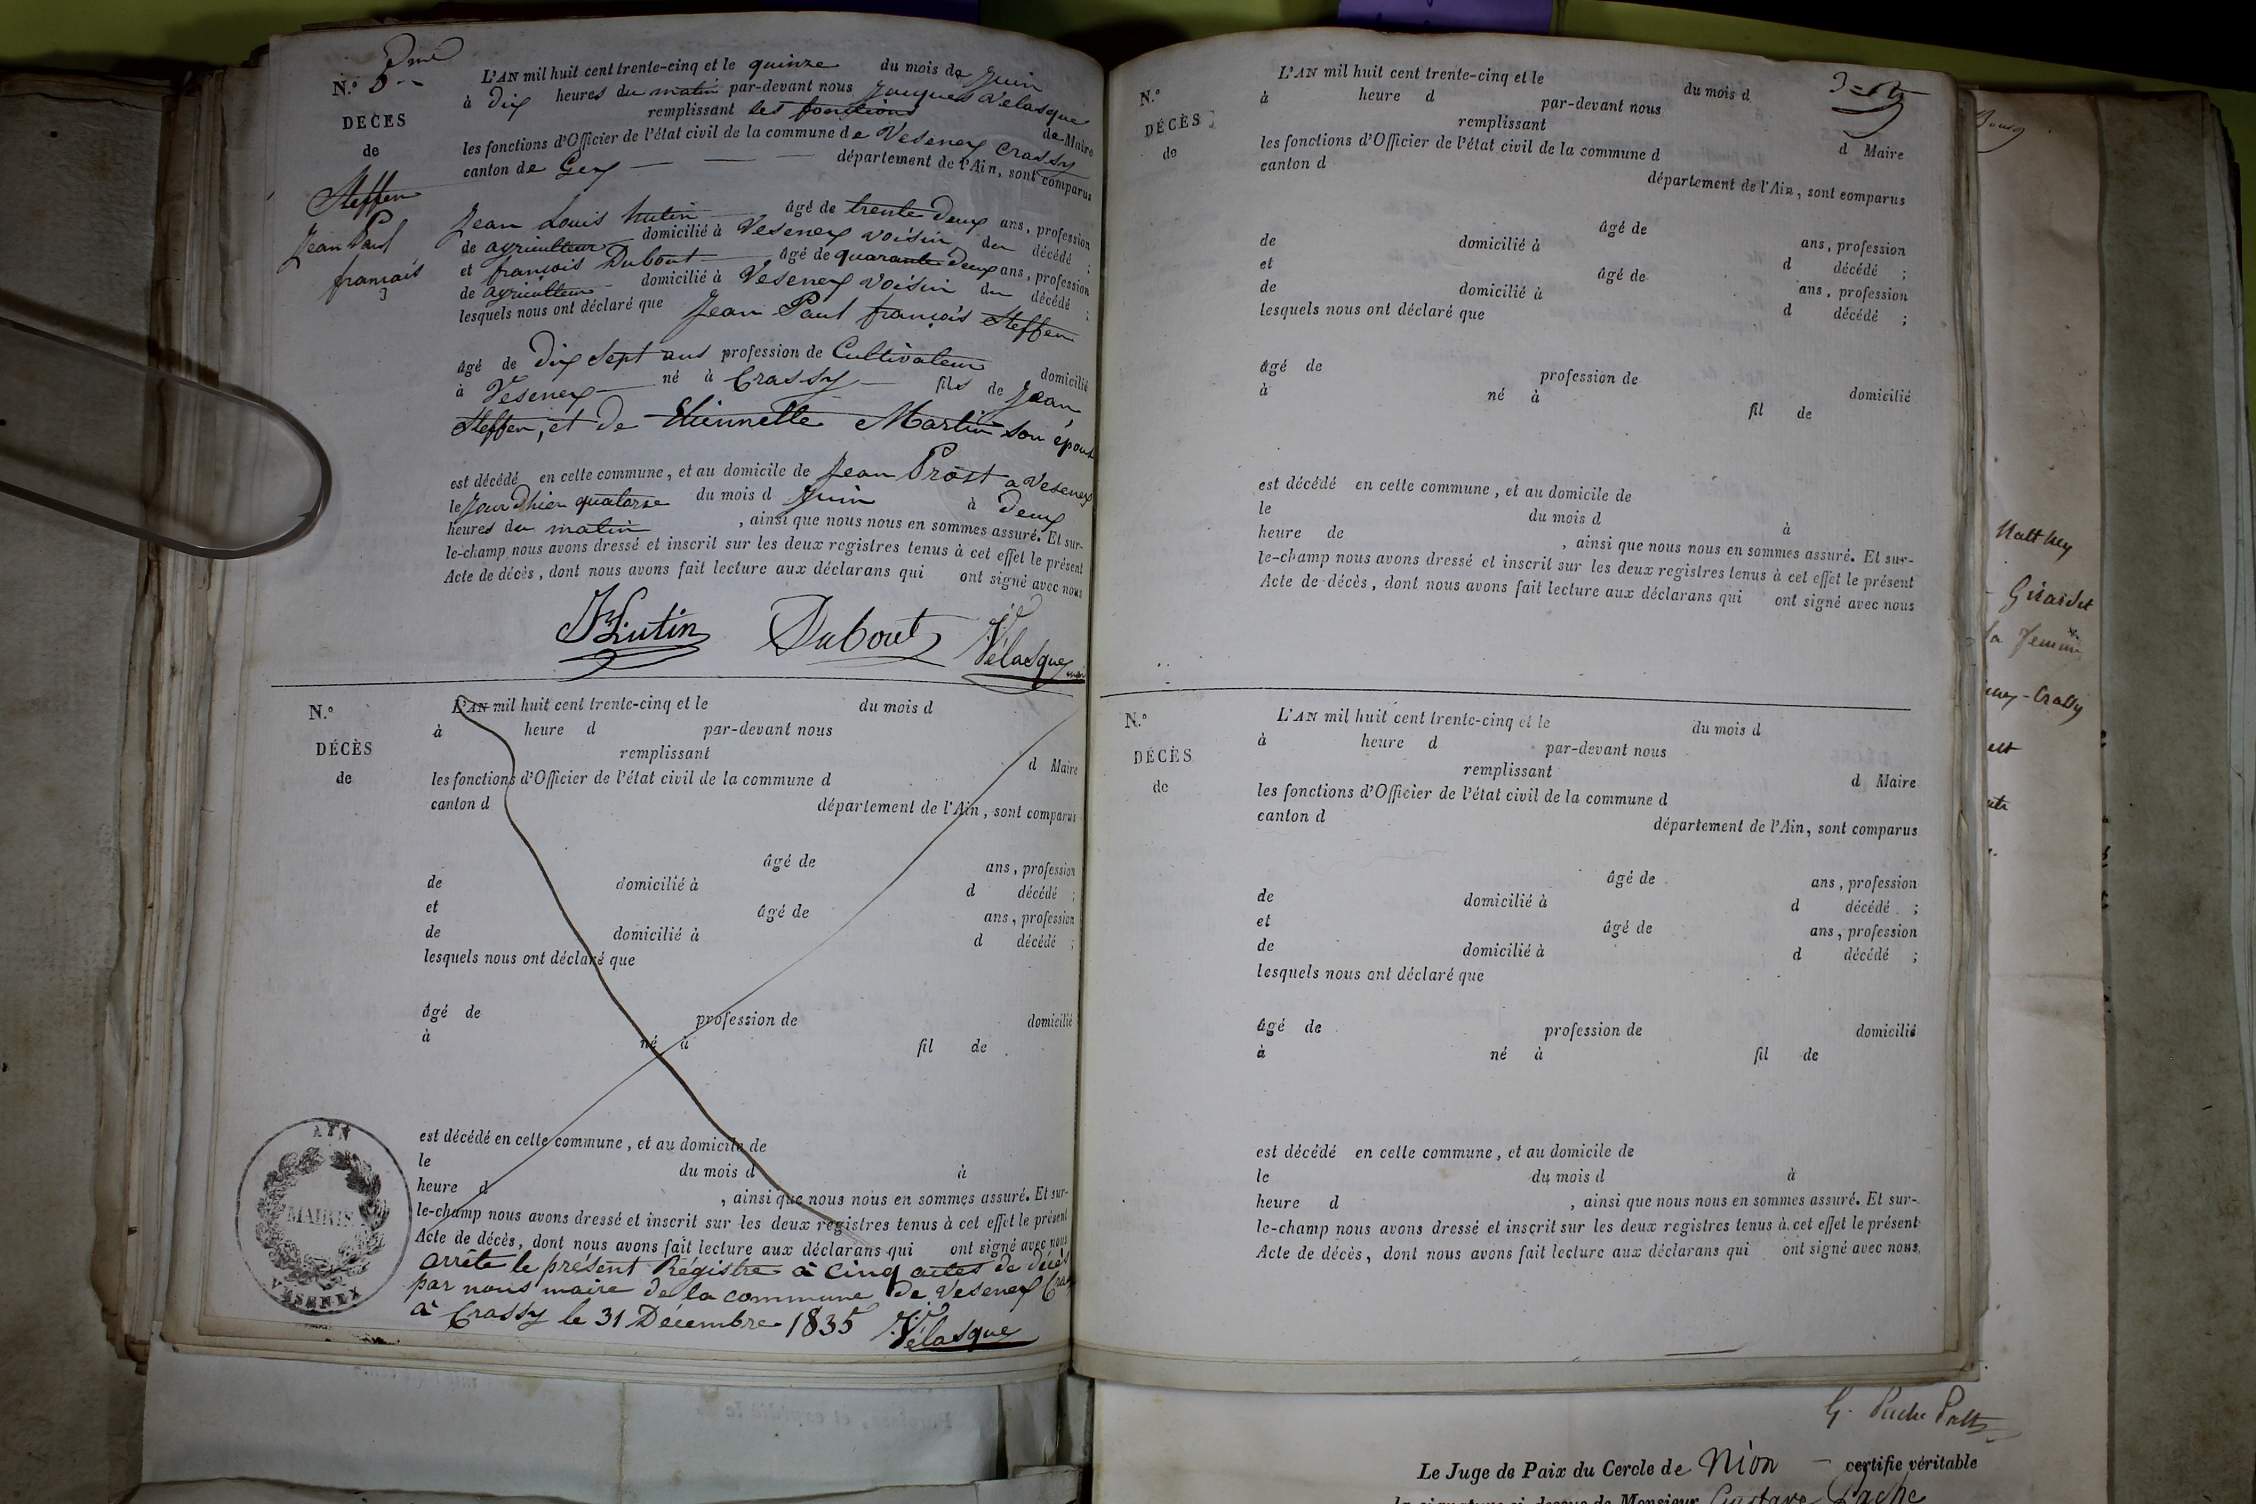 N.° 5me
DECES
de
Steffen
Jean Paul
français
L'AN mil huit cent trente-cinq et le quinze du mois de Juin
à dix heures du matin par-devant nous Jacques Vélasque
remplissant les fonctions de Maire
les fonctions d'Officier de l'état civil de la commune de Vesenex Crassy
canton de Gex département de l'Ain, sont comparus
Jean Louis hutin âgé de trente deux ans, profession
de agriculteur domicilié à Vesenex voisin du décédé ;
et françois Dubout âgé de quarante deux ans, profession
de agriculteur domicilié à Vesenex voisin du décédé ;
lesquels nous ont déclaré que Jean Paul françois Steffen
âgé de dix sept ans profession de Cultivateur domicilié
à Vesenex né à Crassy fils de Jean
Steffen, et de Etiennette Martin son épouse
est décédé en cette commune, et au domicile de Jean Prost a Vesenex
le jour d'hier quatorze du mois d Juin à deux
heures du matin , ainsi que nous nous en sommes assuré. Et sur-
le-champ nous avons dressé et inscrit sur les deux registres tenus à cet effet le présent
Acte de décès, dont nous avons fait lecture aux déclarans qui ont signé avec nous
Hutin Dubout Vélasque
N.°
DÉCÈS
de
L'AN mil huit cent trente-cinq et le du mois d
à heure d par-devant nous
remplissant
d Maire
les fonctions d'Officier de l'état civil de la commune d
canton d département de l'Ain, sont comparus
âgé de ans, profession
de domicilié à d décédé ;
et âgé de ans, profession
de domicilié à d décédé ;
lesquels nous ont déclaré que
âgé de profession de domicilié
à né à fil de
est décédé en cette commune, et au domicile de
le du mois d à
heure d , ainsi que nous nous en sommes assuré. Et sur-
le-champ nous avons dressé et inscrit sur les deux registres tenus à cet effet le présent
Acte de décès, dont nous avons fait lecture aux déclarans qui ont signé avec nous
arrêté le présent Régistre à cinq actes de décès
par nous maire de la commune de Vésenex Cras
à Crassy le 31 Décembre 1835 Vélasque
AIN
MAIRIE
VESENEX
N.°
DÉCÈS
de
L'AN mil huit cent trente-cinq et le du mois d
à heure d par-devant nous
remplissant
d Maire
les fonctions d'Officier de l'état civil de la commune d
canton d département de l'Ain, sont comparus
âgé de ans, profession
de domicilié à d décédé ;
et âgé de ans, profession
de domicilié à d décédé ;
lesquels nous ont déclaré que
âgé de profession de domicilié
à né à fil de
est décédé en cette commune, et au domicile de
le du mois d à
heure de , ainsi que nous nous en sommes assuré. Et sur-
le-champ nous avons dressé et inscrit sur les deux registres tenus à cet effet le présent
Acte de décès, dont nous avons fait lecture aux déclarans qui ont signé avec nous
N.°
DÉCÈS
de
L'AN mil huit cent trente-cinq et le du mois d
à heure d par-devant nous
remplissant
d Maire
les fonctions d'Officier de l'état civil de la commune d
canton d département de l'Ain, sont comparus
âgé de ans, profession
de domicilié à d décédé ;
et âgé de ans, profession
de domicilié à d décédé ;
lesquels nous ont déclaré que
âgé de profession de domicilié
à né à fil de
est décédé en cette commune, et au domicile de
le du mois d à
heure d , ainsi que nous nous en sommes assuré. Et sur-
le-champ nous avons dressé et inscrit sur les deux registres tenus à cet effet le présent
Acte de décès, dont nous avons fait lecture aux déclarans qui ont signé avec nous.
Matthey
Girardet
la femme
Crassy
Le Juge de Paix du Cercle de Nion certifie véritable
la signature ci-dessus de Monsieur Gustave Pache